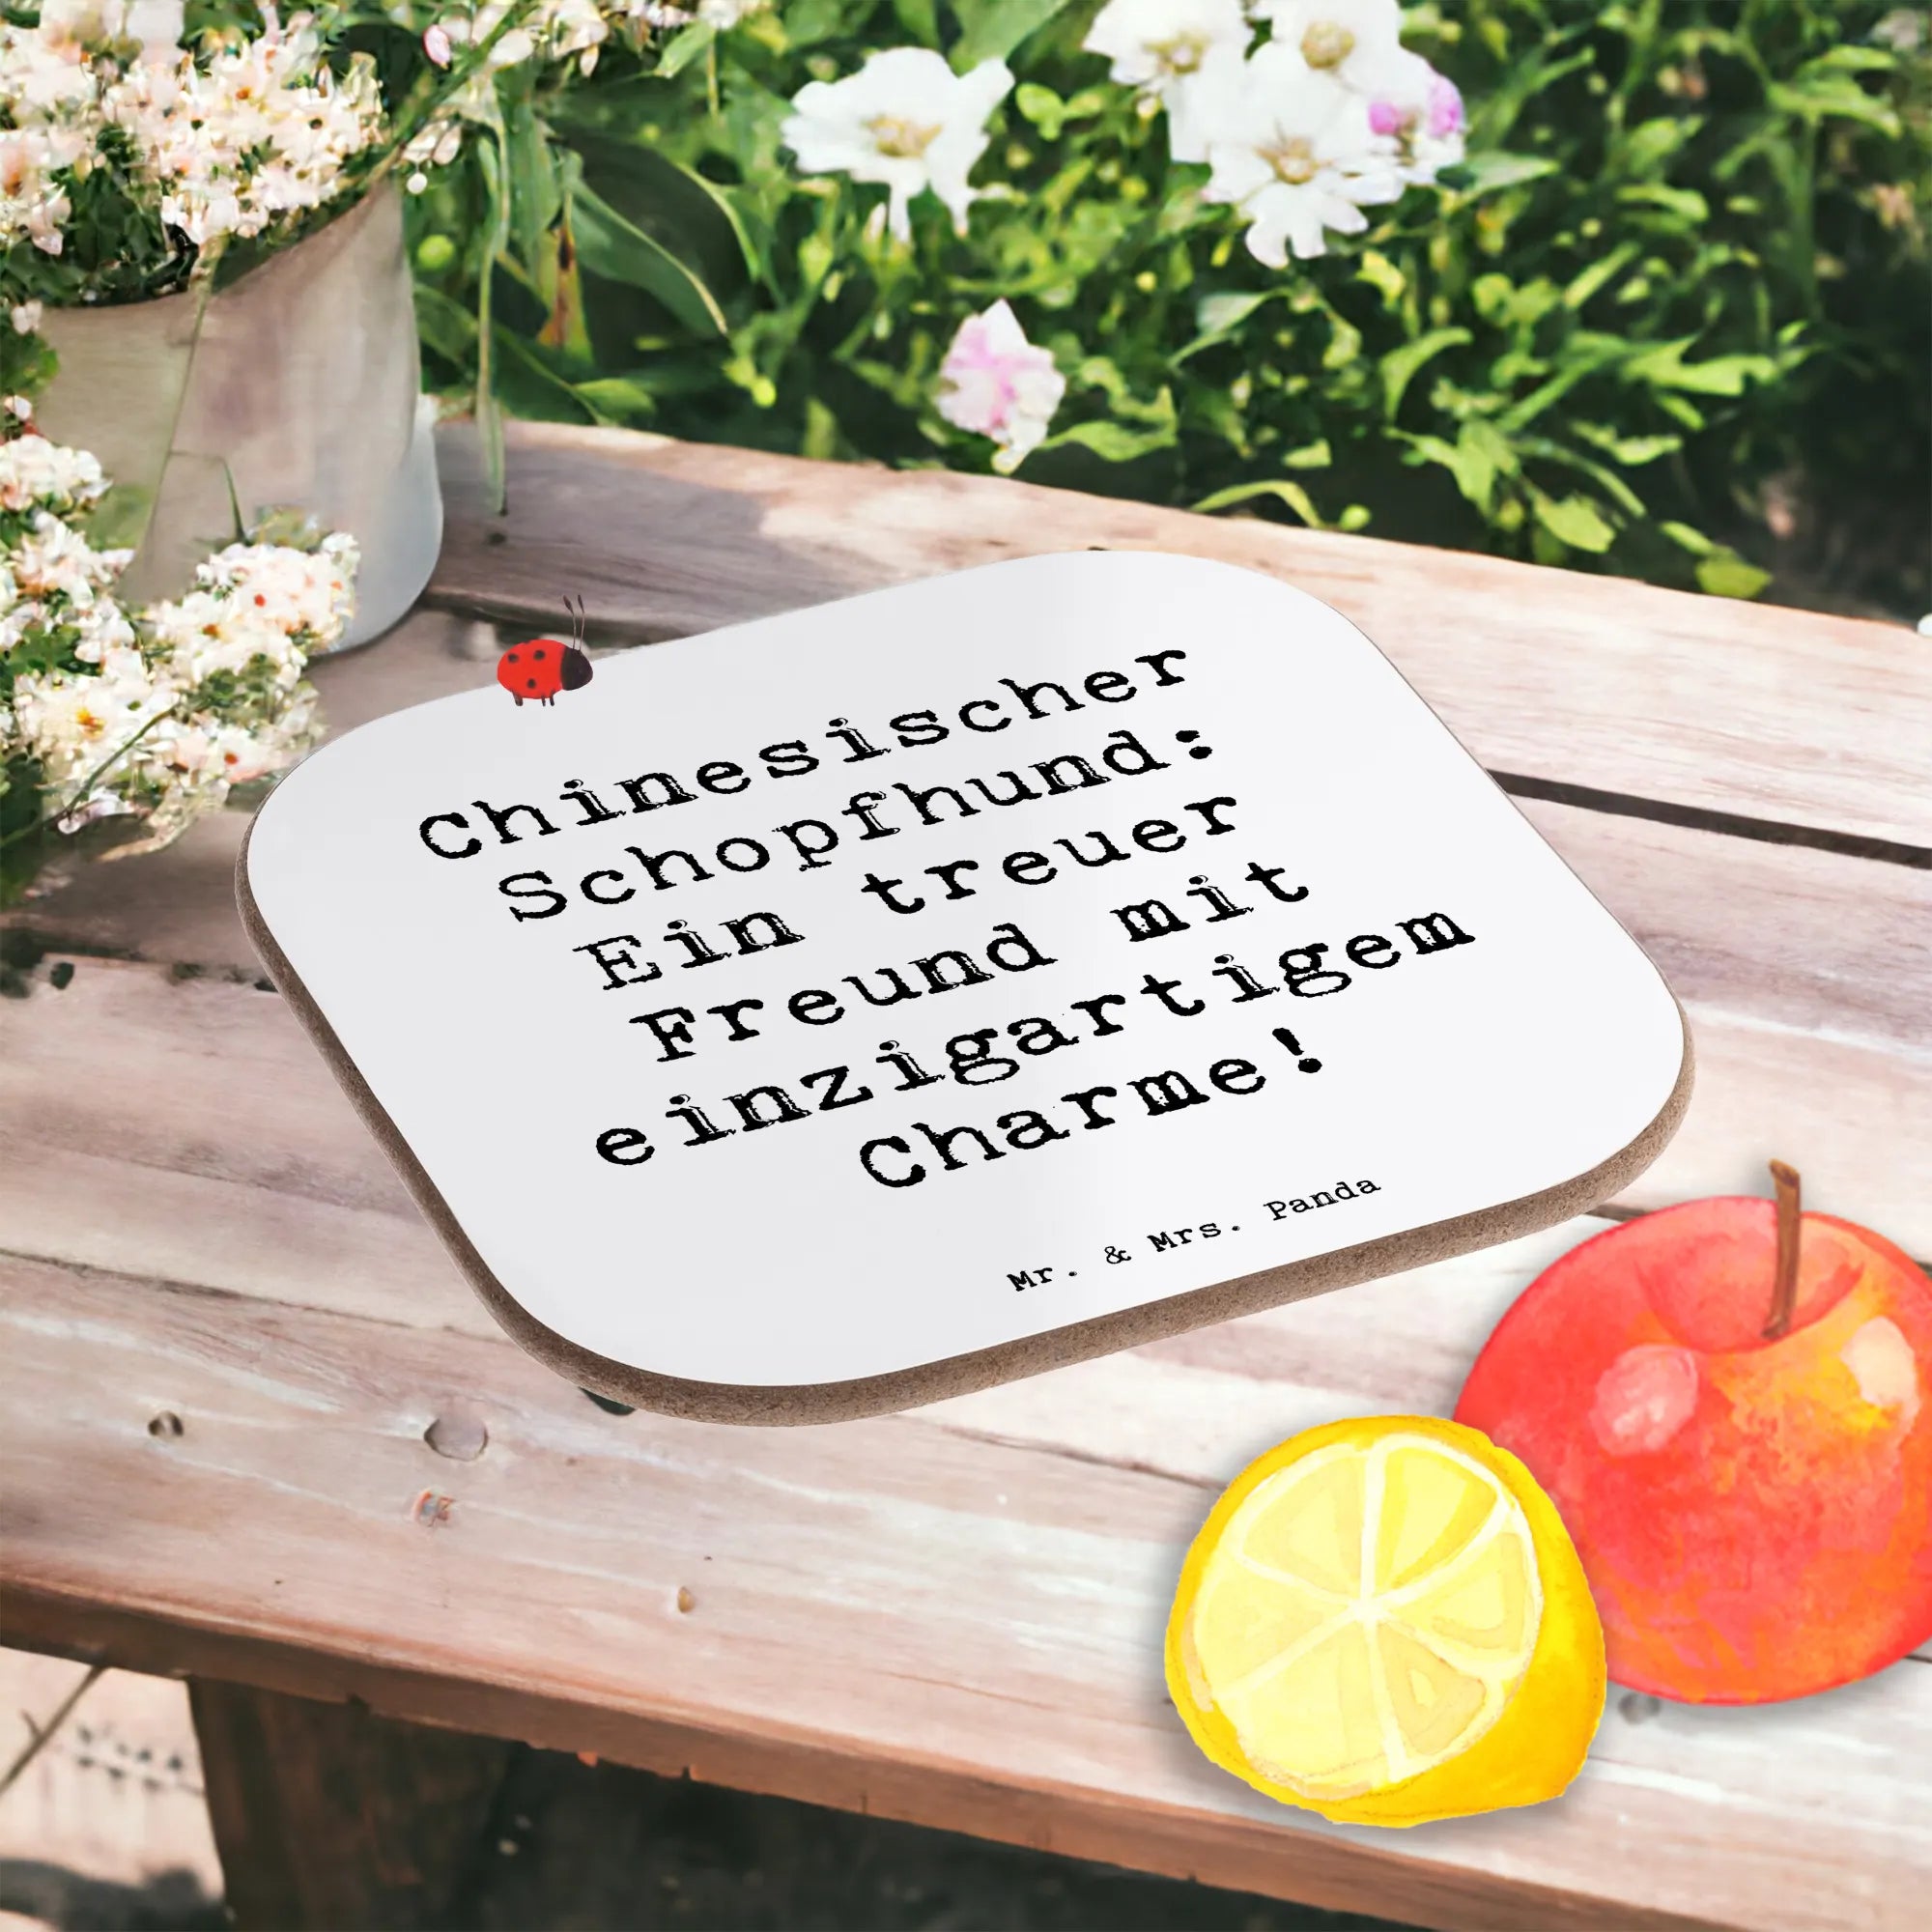 Chinesischer
Schopfhund:
Ein treuer
Freund mit
einzigartigem
Charme!
Mr. & Mrs. Panda